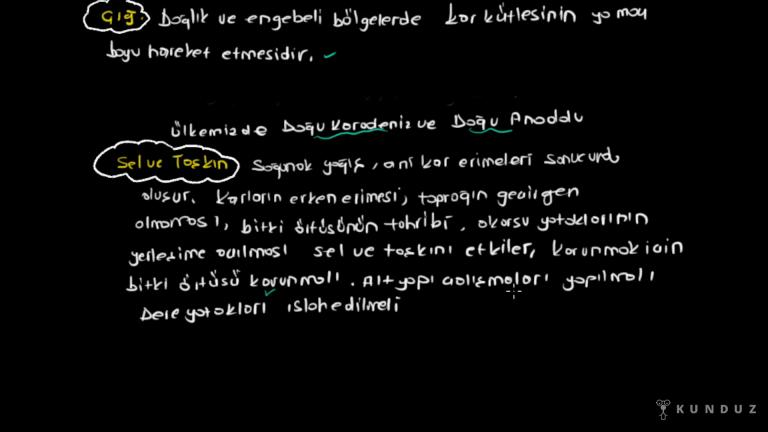 Çığ: Dağlık ve engebeli bölgelerde kar kütlesinin yamaç
boyu hareket etmesidir.
ülkemizde Doğu Karadeniz ve Doğu Anadolu
Sel ve Taşkın Sağanak yağış, ani kar erimeleri sonucunda
oluşur. Karların erken erimesi, toprağın geçirgen
olmaması, bitki örtüsünün tahribi, akarsu yataklarının
yerleşime açılması sel ve taşkını etkiler, korunmak için
bitki örtüsü korunmalı. Alt yapı çalışmaları yapılmalı
Dere yatakları ıslah edilmeli
KUNDUZ